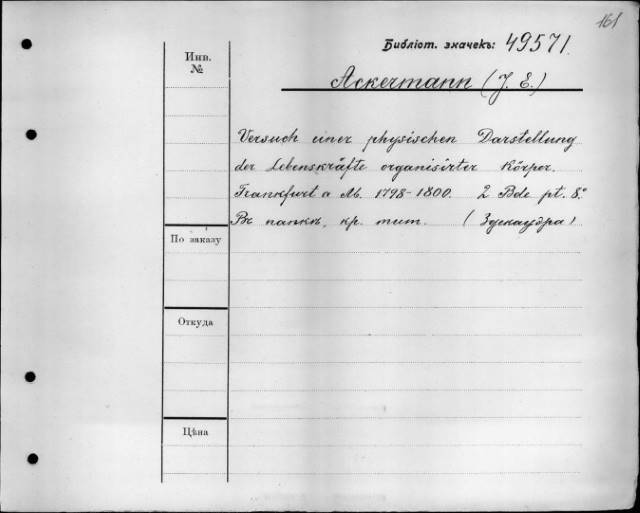 161
Библіот. значекъ: 49571.
Инв.
№
Ackermann (J. E.)
Versuch einer physischen Darstellung
der Lebenskräfte organisirter Körper.
Frankfurt a M. 1798-1800. 2 Bde pt. 8.°
Въ папкѣ, кр. тит.
По заказу
Откуда
Цѣна